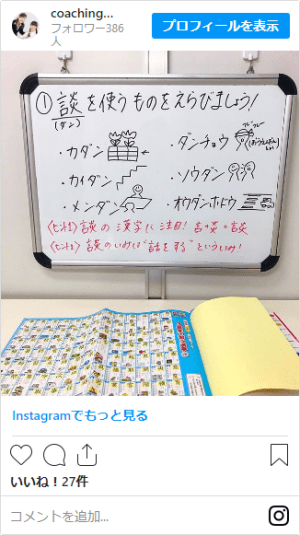 coaching...
フォロワー386
人
プロフィールを表示
①談を使うものをえらびましょう!
(ダン)
・カダン
・ダンチョウ
・カイダン
・ソウダン
・メンダン
・オウダンホドウ
<ヒント1>談の漢字に注目!言+炎=談
<ヒント2>談のいみは"話をする"といういみ!
Instagramでもっと見る
いいね！27件
コメントを追加...